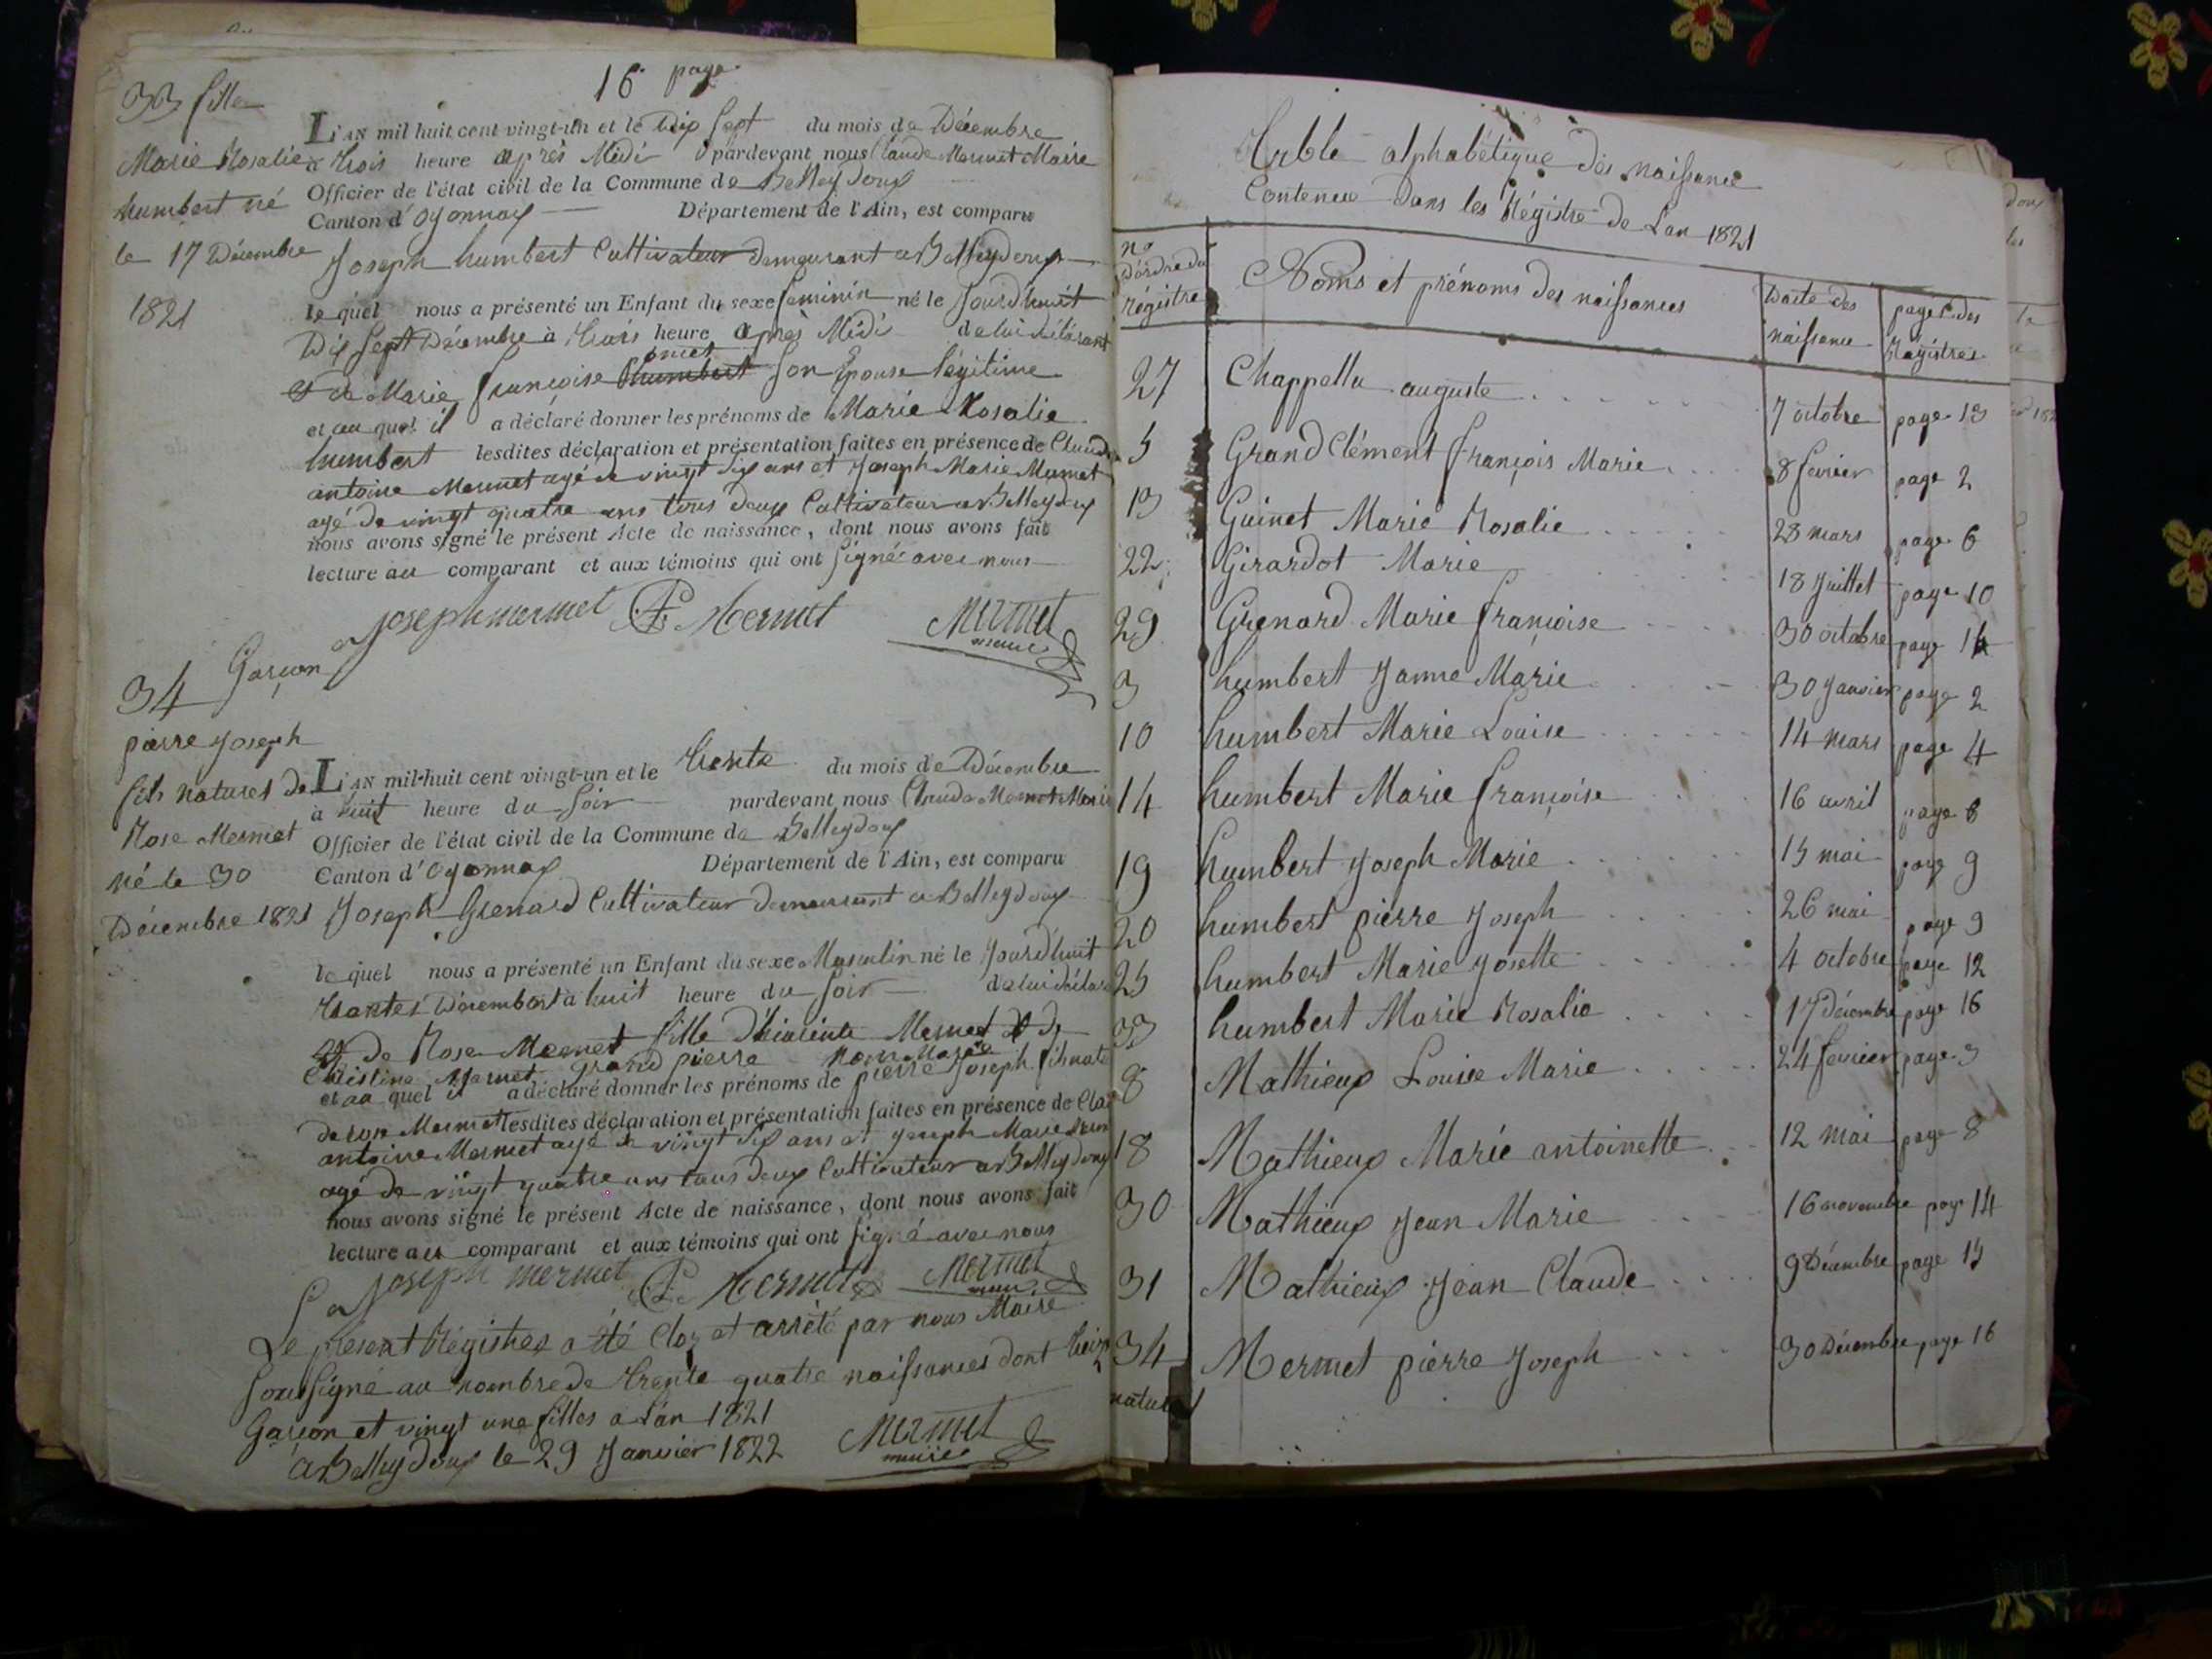 16e page
33 fille
Marie Rosalie
humbert né
le 17 Décembre
1821
L'AN mil huit cent vingt-un et le Dix Sept du mois de Décembre
à trois heure après Midi pardevant nous Claude Mermet Maire
Officier de l'état civil de la Commune de Belleydoux
Canton d'Oyonnax Département de l'Ain, est comparu
Joseph humbert Cultivateur demeurant a Belleydoux
le quel nous a présenté un Enfant du sexe feminin né le Jourd'huit
Dix Sept Décembre à trois heure après Midi de lui déclarant
et de Marie françoise humbert Son Epouse légitime
et au quel il a déclaré donner les prénoms de Marie Rosalie
humbert lesdites déclaration et présentation faites en présence de Claude
antoine Mermet agé de vingt Six ans et Joseph Marie Mermet
agé de vingt quatre ans tous deux Cultivateur a Belleydoux
nous avons signé le présent Acte de naissance, dont nous avons fait
lecture au comparant et aux témoins qui ont Signé avec nous
Joseph mermet Mermet Mermet
maire
34 Garçon
pierre Joseph
fils naturel de
Rose Mermet
né le 30
Décembre 1821
L'AN mil-huit cent vingt-un et le trente du mois de Décembre
à huit heure du Soir pardevant nous Claude Mermet Maire
Officier de l'état civil de la Commune de Belleydoux
Canton d'Oyonnax Département de l'Ain, est comparu
Joseph Grenard Cultivateur demeurant a Belleydoux
le quel nous a présenté un Enfant du sexe Masculin né le Jourd'huit
trente Décembre à huit heure du Soir de lui déclarant
et de Rose Mermet fille d'hiacinte Mermet et de
Christine Mermet grand pierre
et au quel il a déclaré donner les prénoms de pierre Joseph fils nate
de rose Mermet lesdites déclaration et présentation faites en présence de Clau
antoine Mermet agé de vingt Six ans et Joseph Marie Mermet
agé de vingt quatre ans tous deux Cultivateur a Belleydoux
nous avons signé le présent Acte de naissance, dont nous avons fait
lecture au comparant et aux témoins qui ont Signé avec nous
Joseph mermet Mermet Mermet
maire
Le présent Régistres a été Clos et arrêté par nous Maire
Sousigné au nombre de trente quatre naissances dont treize
Garçon et vingt une filles a L'an 1821
à Belleydoux le 29 Janvier 1822 Mermet
maire
Table alphabétique des naissance
Contenue dans les Régistre de L'an 1821
no d'ordre du régistre Noms et prénoms des naissances Date des naissance pages des Régistres
27 Chappellu auguste 7 octobre page 13
5 Grand Clément françois Marie 8 fevrier page 2
13 Guinet Marie Rosalie 28 mars page 6
22 Girardot Marie 18 Juillet page 10
29 Grenard Marie françoise 30 octobre page 14
3 humbert Janne Marie 30 Janvier page 2
10 humbert Marie Louise 14 mars page 4
14 humbert Marie françoise 16 avril page 6
19 humbert Joseph Marie 15 mai page 9
20 humbert pierre Joseph 26 mai page 9
25 humbert Marie Josette 4 octobre page 12
33 humbert Marie Rosalie 17 Décembre page 16
8 Mathieux Louise Marie 24 fevrier page 3
18 Mathieux Marie antoinette 12 mai page 8
30 Mathieux Jean Marie 16 novembre page 14
31 Mathieux Jean Claude 9 Décembre page 15
34 Mermet pierre Joseph 30 Décembre page 16
naturel